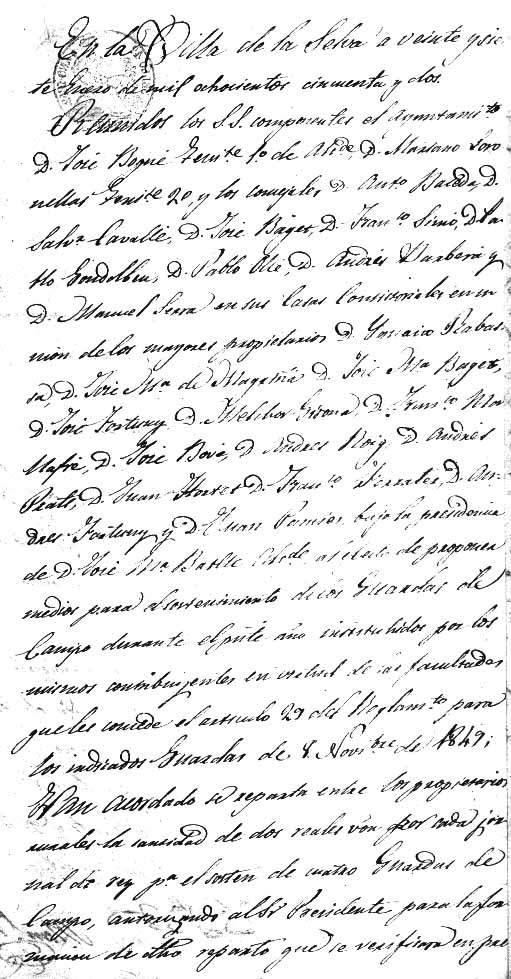 En la Villa de la Selva a veinte y sie
te Enero de mil ochocientos cincuenta y dos.
Reunidos los S.S. componentes el Ayuntami.to
D. José Bogué Tenite 1º de Alde, D. Mariano Soro
nellas Tenite 2º, y los concejales D. Anto Baceda, D.
Salvr Cavallé, D. José Bages, D. Franco Simó, D. Pa
blo Gondolbeu, D. Pablo Olé, D. Andrés Barberá y
D. Manuel Serra en sus Casas Consistoriales en u
nion de los mayores propietarios D. Rabas
sa, D. José Ma de Magriñá D. José Ma Bages,
D. José Fortuny D. Melchor Girona, D. Franco Mo
llafré, D. José Bové, D. Andres Roig, D. Andrés
Prats, D. Juan Hortet D. Franco Ferrater, D. An
dres Fortuny y D. Juan Pamies, bajo la presidencia
de D. José Ma Batlle Alcde a efecto de proponer
medios para el sostenimiento de los Guardas de
Campo durante el pnte año instituhidos por los
mismos contribuyentes en virtud de las facultades
que les concede el articulo 29 del Reglamto para
los indicados Guardas de 8 Novbre de 1849;
Han acordado se reparta entre los propietarios
la cantidad de dos reales von por cada jor
nal de rey pa el sosten de cuatro Guardas de
Campo, autorizando al Sr Presidente para la for
macion de dho reparto que se verificará en pre